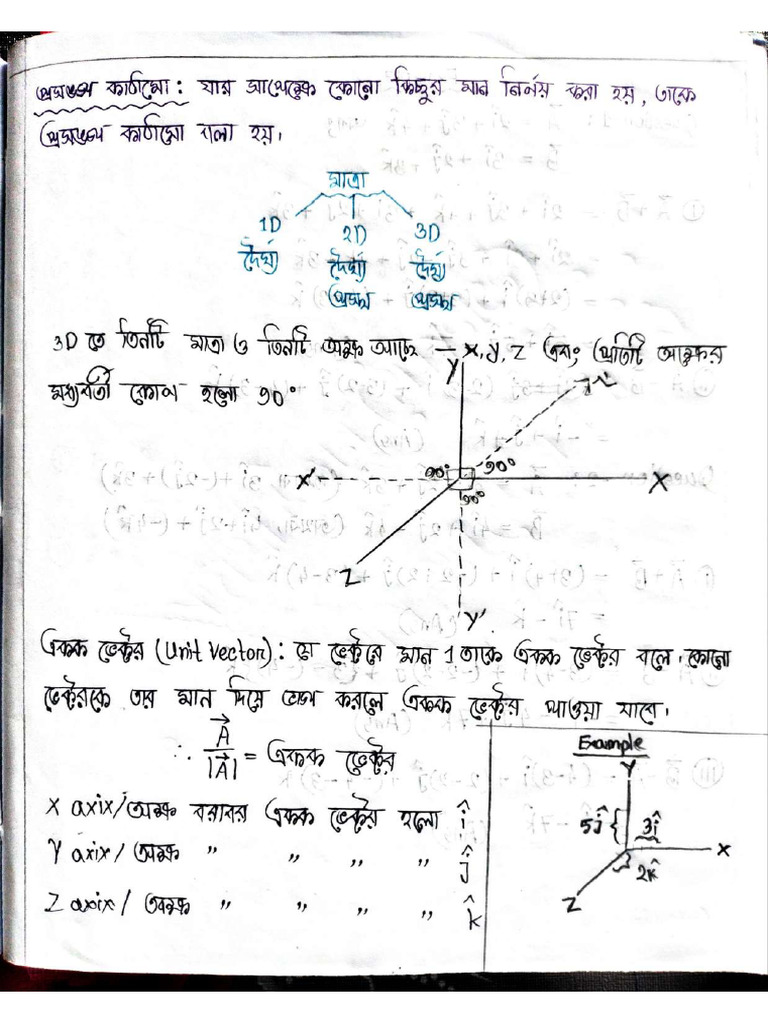 প্রসঙ্গ কাঠামো: যার সাপেক্ষে কোনো কিছুর মান নির্নয় করা হয়, তাকে
প্রসঙ্গ কাঠামো বলা হয়।
মাত্রা
1D 2D 3D
দৈর্ঘ্য দৈর্ঘ্য দৈর্ঘ্য
প্রস্থ প্রস্থ
3D তে তিনটি মাত্রা ও তিনটি অক্ষ আছে — X, Y, Z এবং প্রতিটি অক্ষের
মধ্যবর্তী কোণ হলো 90°
Y
X' 90° 90° X
90°
Z
Y'
একক ভেক্টর (Unit Vector): যে ভেক্টরে মান 1 তাকে একক ভেক্টর বলে। কোনো
ভেক্টরকে তার মান দিয়ে ভাগ করলে একক ভেক্টর পাওয়া যাবে।
∴ A⃗/|A⃗| = একক ভেক্টর
X axix/অক্ষ বরাবর একক ভেক্টর হলো î
Y axix/অক্ষ " " " " ĵ
Z axix/অক্ষ " " " " k̂
Example
Y
5ĵ 3î
X
2k̂
Z